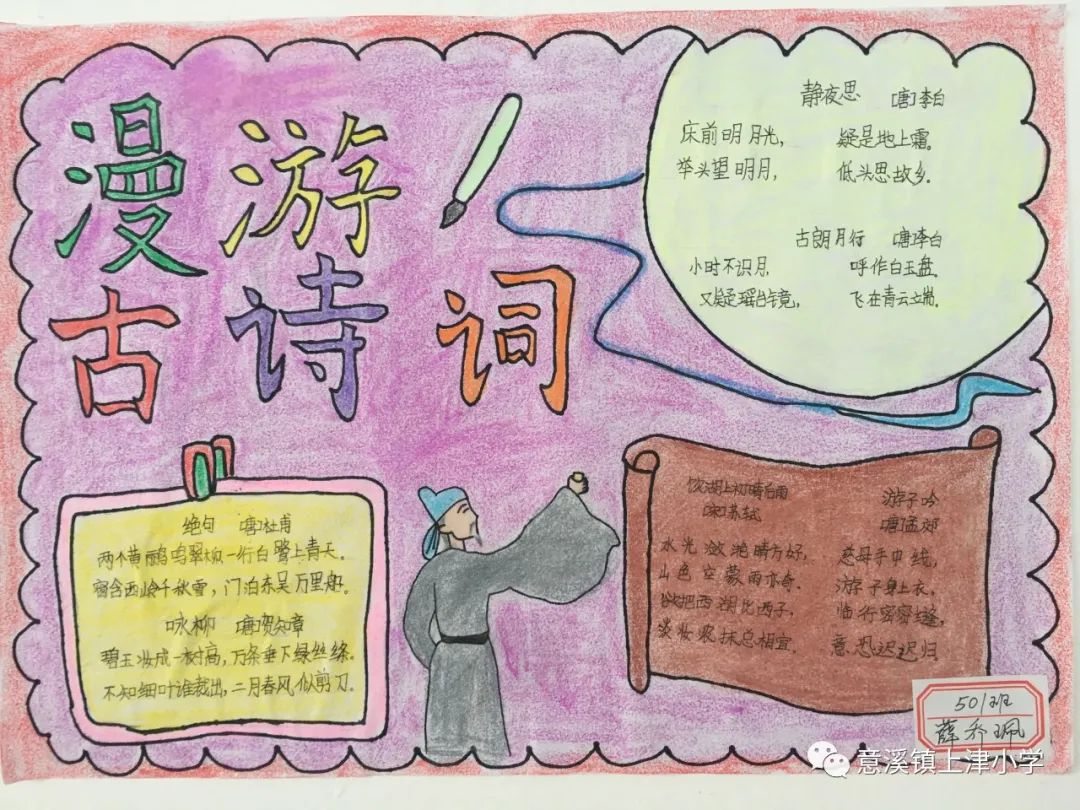 漫游
古诗词
静夜思 [唐]李白
床前明月光， 疑是地上霜。
举头望明月， 低头思故乡。
古朗月行 [唐]李白
小时不识月， 呼作白玉盘。
又疑瑶台镜， 飞在青云端。
绝句 [唐]杜甫
两个黄鹂鸣翠柳，一行白鹭上青天。
窗含西岭千秋雪，门泊东吴万里船。
咏柳 [唐]贺知章
碧玉妆成一树高，万条垂下绿丝绦。
不知细叶谁裁出，二月春风似剪刀。
饮湖上初晴后雨
[宋]苏轼
水光潋滟晴方好，
山色空蒙雨亦奇，
欲把西湖比西子，
淡妆浓抹总相宜。
游子吟
[唐]孟郊
慈母手中线，
游子身上衣。
临行密密缝，
意恐迟迟归
501班
薛乔珮
意溪镇上津小学